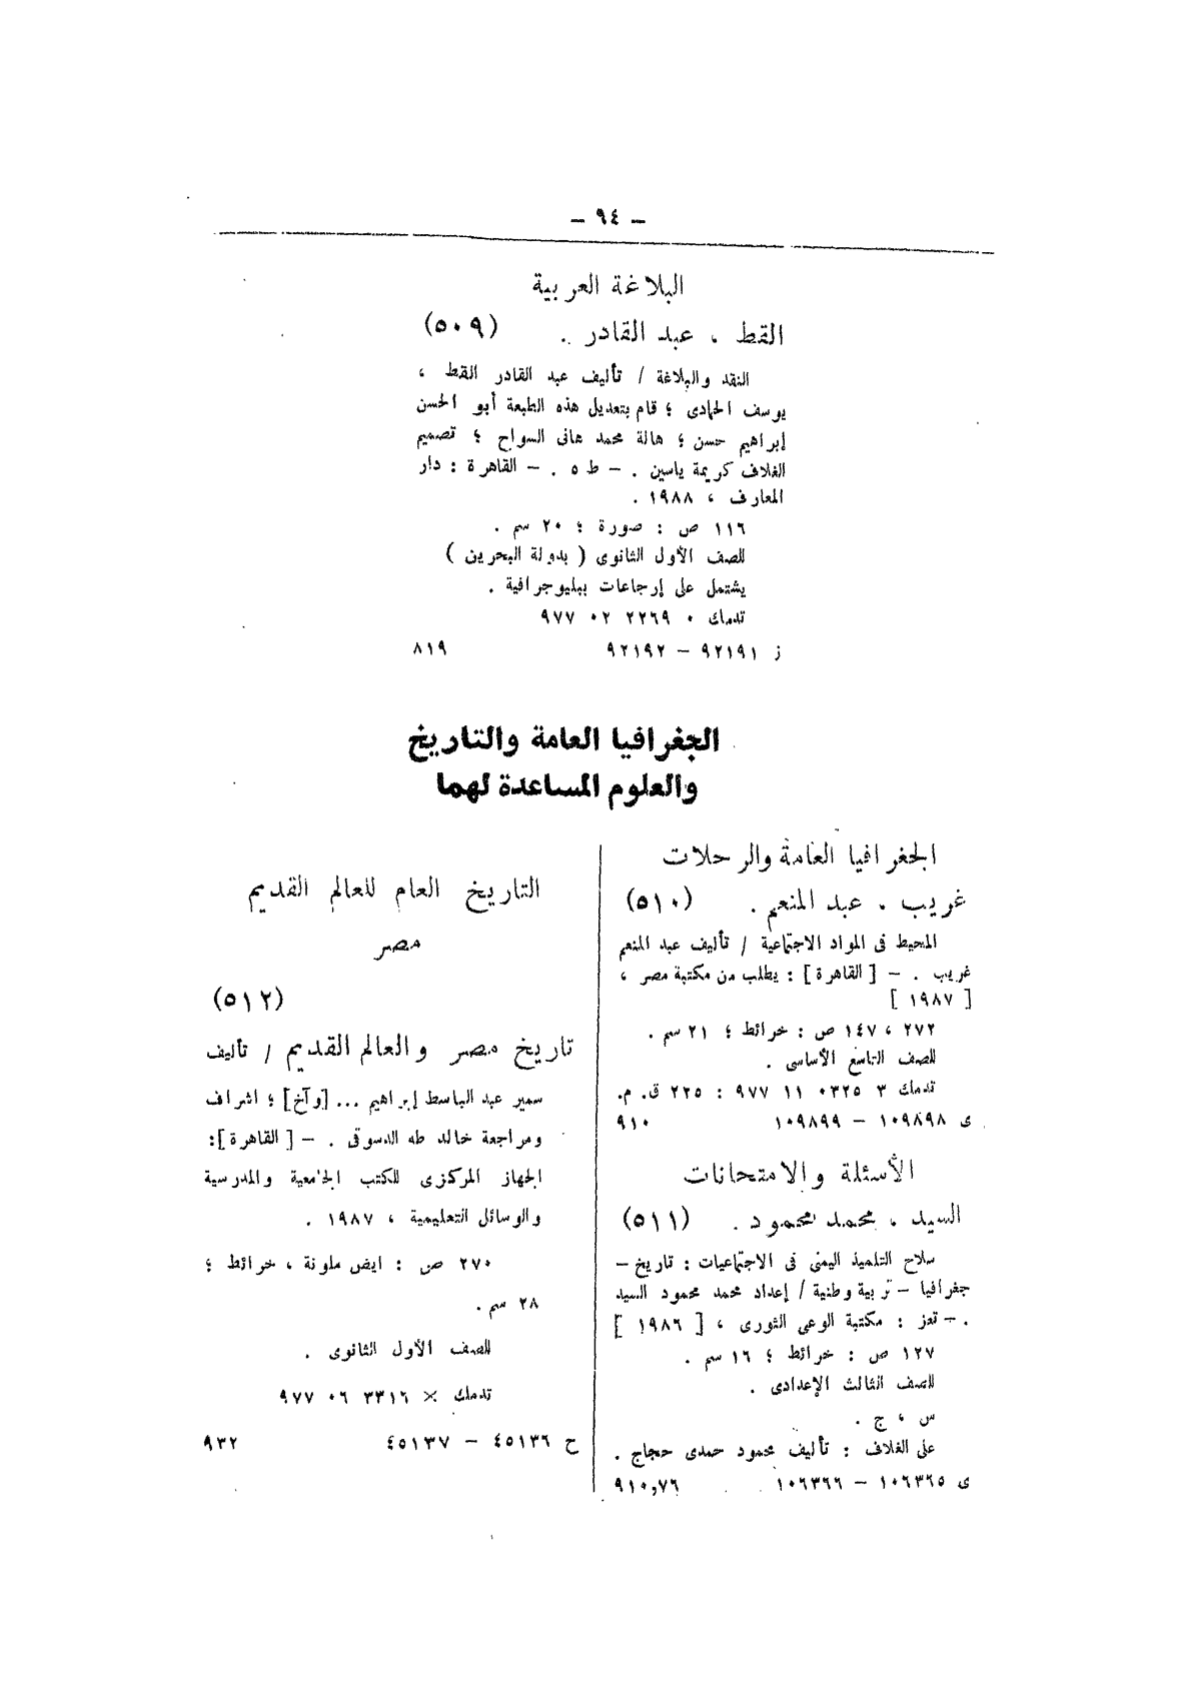 – ٩٤ –
البلاغة العربية
القط ، عبد القادر . (٥٠٩)
النقد والبلاغة / تأليف عبد القادر القط ،
يوسف الحمادى ؛ قام بتعديل هذه الطبعة أبو الحسن
إبراهيم حسن ؛ هالة محمد هانى السواح ؛ تصميم
الغلاف كريمة ياسين . – ط ٥ . – القاهرة : دار
المعارف ، ١٩٨٨ .
١١٦ ص : صورة ؛ ٢٠ سم .
للصف الأول الثانوى ( بدولة البحرين )
يشتمل على إرجاعات ببليوجرافية .
تدمك ٠ ٢٢٦٩ ٠٢ ٩٧٧
ز ٩٢١٩١ – ٩٢١٩٢ ٨١٩
الجغرافيا العامة والتاريخ
والعلوم المساعدة لهما
الجغرافيا العامة والرحلات
غريب ، عبد المنعم . (٥١٠)
المحيط فى المواد الاجتماعية / تأليف عبد المنعم
غريب . – [ القاهرة ] : يطلب من مكتبة مصر ،
[ ١٩٨٧ ]
٢٧٢ ، ١٤٧ ص : خرائط ؛ ٢١ سم .
للصف التاسع الأساسى .
تدمك ٣ ٠٣٢٥ ١١ ٩٧٧ : ٢٢٥ ق. م.
ى ١٠٩٨٩٨ – ١٠٩٨٩٩ ٩١٠
الأسئلة والامتحانات
السيد ، محمد محمود . (٥١١)
سلاح التلميذ اليمنى فى الاجتماعيات : تاريخ –
جغرافيا – تربية وطنية / إعداد محمد محمود السيد
. – تعز : مكتبة الوعى الثورى ، [ ١٩٨٦ ]
١٢٧ ص : خرائط ؛ ١٦ سم .
للصف الثالث الإعدادى .
س ، ج .
على الغلاف : تأليف محمود حمدى حجاج .
ى ١٠٦٣٦٥ – ١٠٦٣٦٦ ٩١٠,٧٦
التاريخ العام للعالم القديم
مصر
(٥١٢)
تاريخ مصر والعالم القديم / تأليف
سمير عبد الباسط إبراهيم ... [وآخ] ؛ اشراف
ومراجعة خالد طه الدسوقى . – [ القاهرة ]:
الجهاز المركزى للكتب الجامعية والمدرسية
والوسائل التعليمية ، ١٩٨٧ .
٢٧٠ ص : ايض ملونة ، خرائط ؛
٢٨ سم .
للصف الأول الثانوى .
تدمك × ٣٣١٦ ٠٦ ٩٧٧
ح ٤٥١٣٦ – ٤٥١٣٧ ٩٣٢